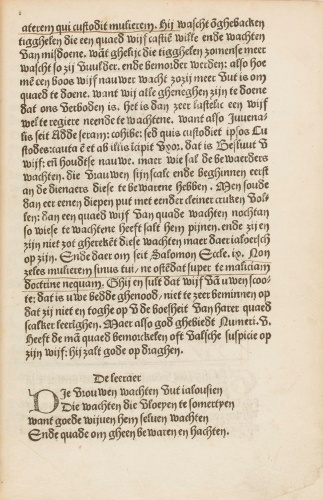 aterem qui custodit mulierem. Hij wascht ōghebacken
tigghelen die een quaed wijf castiē wilt ende wachten
van misdoene. wāt ghelijc die tigghelen zomense meer
wascht so zij vuulder. ende bemorder werden: also hoe
mē een boos wijf nauwer wacht zo zij meer vut is om
quaed te doene. want wij alle gheneghen zijn te doene
dat ons verboden is. Het is dan zeer lastelic een wijf
wel te regiere neende te wachtene. want also Juuena-
lis seit Adde seram: cohibe: sed quis custodiet ipsos Cu
stodes: cauta ē et ab illis incipit Vxor. dat is Besluut v
wijf: eñ houdtse nauwe. maer wie sal de bewaerders
wachten. die vrauwen zijn scalc ende beghinnen eerst
an die dienaers diese te bewarene hebben. Men soude
dan eer eenen diepen put met eender cleiner cruken vol-
len: dan een quaed wijf van quade wachten nochtan
so wiese te wachtene heeft salt hem pijnen. ende zij en
zijn niet zot gherekēt diese wachten maer daer ialoesch
op zijn. Ende daer om seit Salomon Eccle. ix. Non
zeles mulierem sinus tui: ne ostēdat super te maliciam
doctrine nequam. Ghij en sult dat wijf vā uwen scoo-
te: dat is uwe bedde ghenood: niet te zeer beminnen op
dat zij niet en toghe op v de boesheit van harer quaed
scalker leerighen. Maer also god ghebiedt Numeri. v.
Heeft de mā quaed bemorckelen oft valsche suspicie op
zijn wijf: hij zalt gode op draghen.
De leeraer
DIe vrouwen wachten vut ialousien
Die wachten die vloeyen te somertyen
want goede wijuen hem seluen wachten
Ende quade om gheen bewaren en hachten.